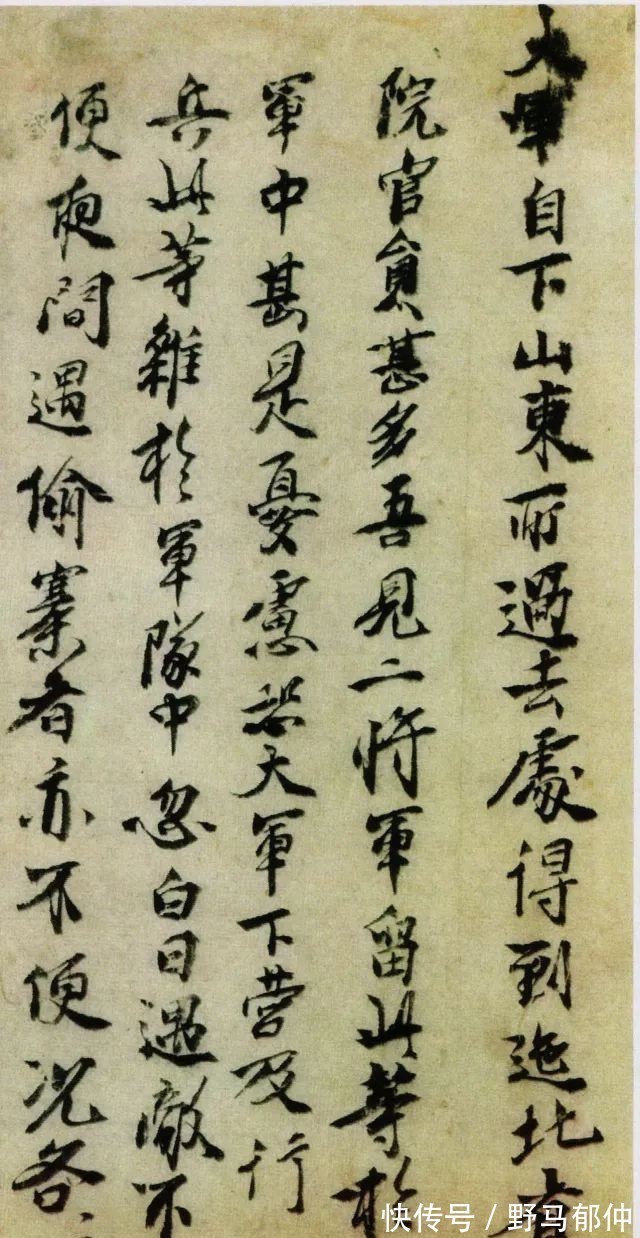 大軍自下山東所過去處得到迤北省
院官員甚多吾見二將軍留此等於
軍中甚是憂慮恐大軍下營及行
兵此等雜於軍隊中忽白日遇敵不
便夜間遇偷寨者亦不便况各
快传号/野马郁仲